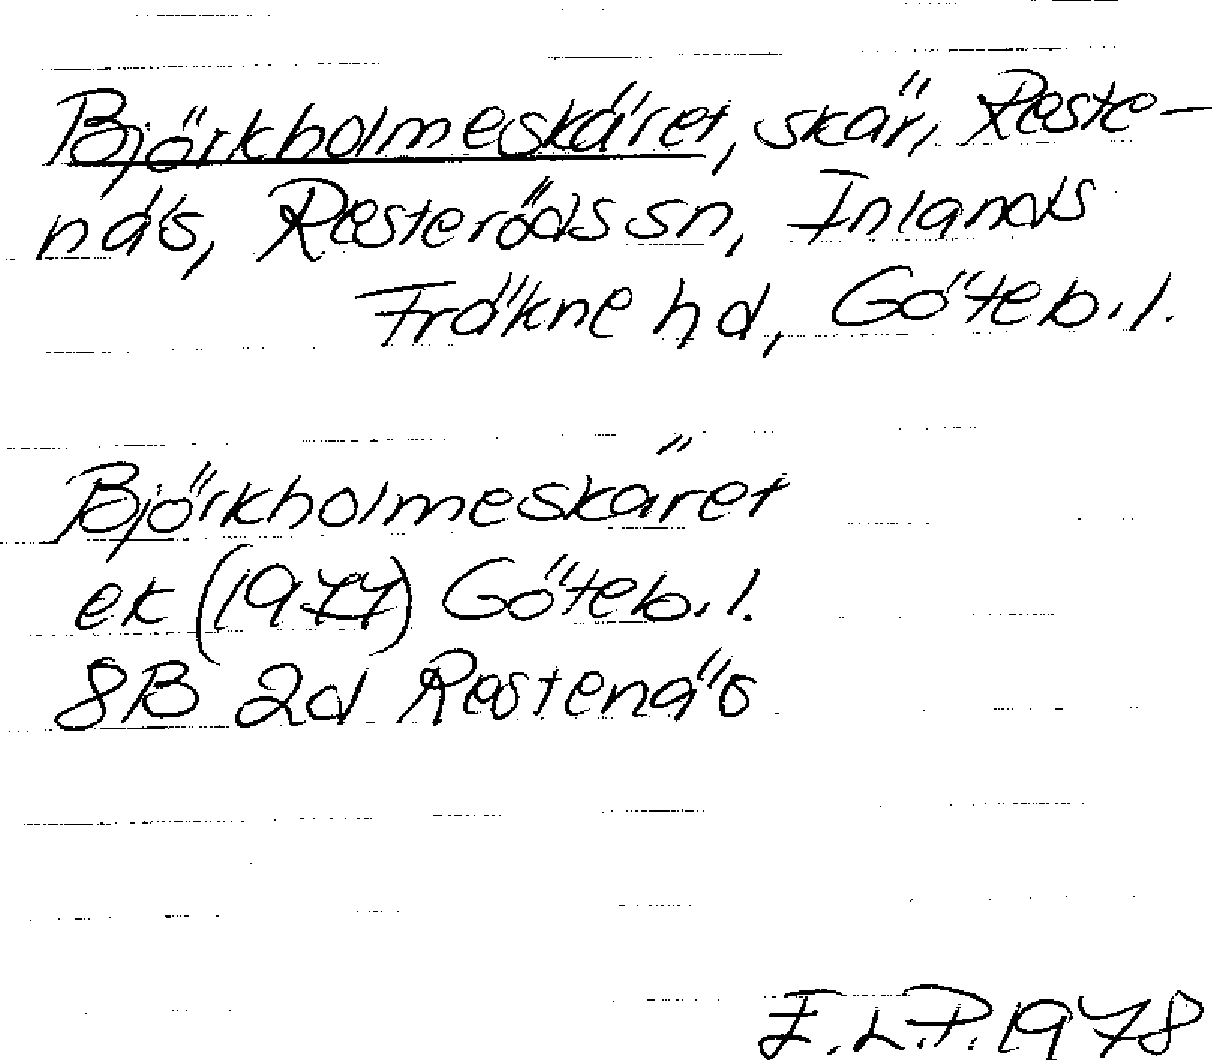 Björkholmeskäret, skär, Reste-
näs, Resteröds sn, Inlands
Fräkne hd, Göteb.l.
Björkholmeskäret
ek (1977) Göteb.l.
8B 2d Restenäs
E.L.P. 1978